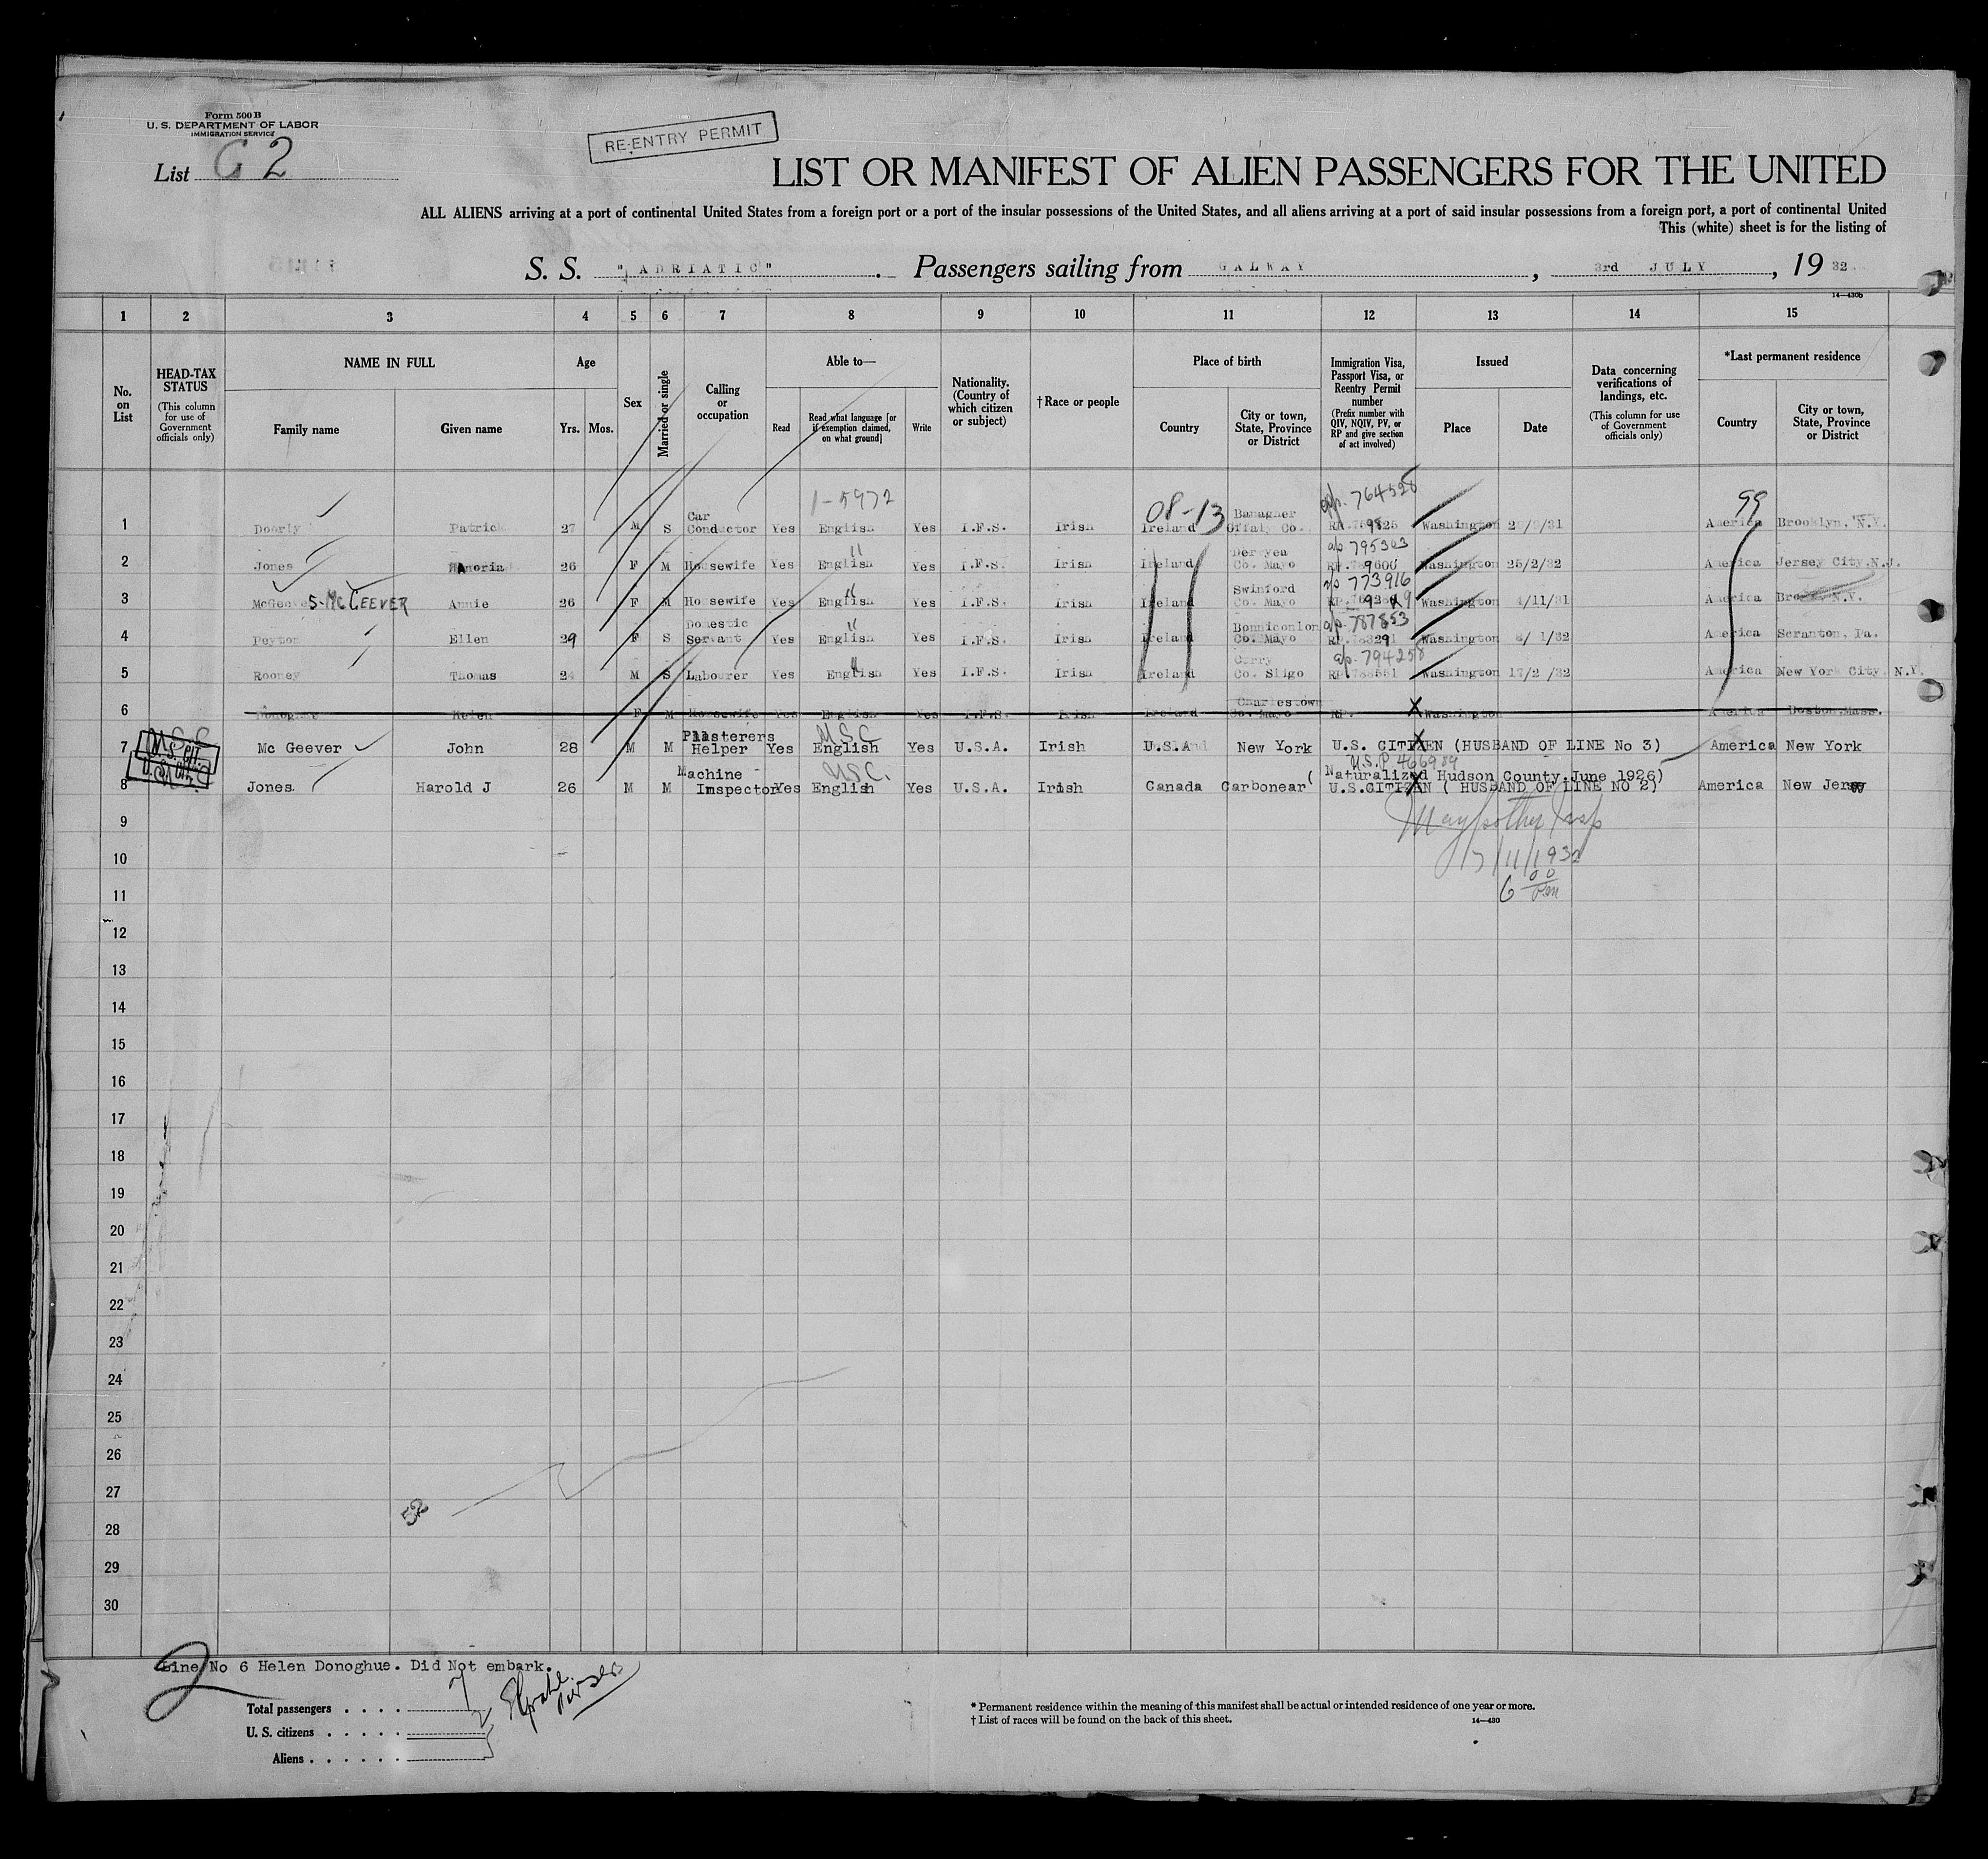 Form 500 B
U. S. DEPARTMENT OF LABOR
IMMIGRATION SERVICE
List 2
RE-ENTRY PERMIT
LIST OR MANIFEST OF ALIEN PASSENGERS FOR THE UNITED
ALL ALIENS arriving at a port of continental United States from a foreign port or a port of the insular possessions of the United States, and all aliens arriving at a port of said insular possessions from a foreign port, a port of continental United
This (white) sheet is for the listing of
S. S. "ADRIATIC" . Passengers sailing from GALWAY , 3rd JULY , 19 32
14—430b
1 2 3 4 5 6 7 8 9 10 11 12 13 14 15
No. on List
HEAD-TAX STATUS (This column for use of Government officials only)
NAME IN FULL Family name Given name
Age Yrs. Mos.
Sex
Married or single
Calling or occupation
Able to— Read Read what language [or if exemption claimed, on what ground] Write
Nationality. (Country of which citizen or subject)
†Race or people
Place of birth Country City or town, State, Province or District
Immigration Visa, Passport Visa, or Reentry Permit number (Prefix number with QIV, NQIV, PV, or RP and give section of act involved)
Issued Place Date
Data concerning verifications of landings, etc. (This column for use of Government officials only)
*Last permanent residence Country City or town, State, Province or District
1-5972 08-13 764528 99
1 Doorly Patrick 27 M S Car Conductor Yes English Yes I.F.S. Irish Ireland Banagher Offaly Co. Washington America Brooklyn, N.Y.
795303
2 Jones 26 F M Housewife Yes English Yes I.F.S. Irish Ireland Co. Mayo Washington 25/2/32 America Jersey City.N.J.
773916
3 McGEEVER Annie 26 F M Housewife Yes English Yes I.F.S. Irish Ireland Swinford Co. Mayo Washington 4/11/31 America
787853
4 Peyton Ellen 29 F S Domestic Servant Yes English Yes I.F.S. Irish Ireland Bonniconlon Co. Mayo Washington America Scranton, Pa.
794258
5 Rooney Thomas 24 M S Labourer Yes English Yes I.F.S. Irish Ireland Curry Co. Sligo Washington 17/2 /32 America New York City N.Y.
6 Donoghue Helen F M Housewife Yes English Yes I.F.S. Irish Ireland Charlestown Co. Mayo RP. Washington America Boston.Mass.
U.S.C
7 Mc Geever John 28 M M Plasterers Helper Yes English Yes U.S.A. Irish U.S.A New York U.S. CITIZEN (HUSBAND OF LINE No 3) America New York
U.S.C. U.S.P 466989
8 Jones Harold J 26 M M Machine Inspector Yes English Yes U.S.A. Irish Canada Carbonear (Naturalized Hudson County.June 1926) U.S.CITIZEN ( HUSBAND OF LINE NO 2) America New Jersey
9
10
11
6 00
12
13
14
15
16
17
18
19
20
21
22
23
24
25
26
27
52
28
29
30
Line No 6 Helen Donoghue. Did Not embark.
2
Total passengers . . . . 7
U. S. citizens . . . . .
Aliens . . . . . .
* Permanent residence within the meaning of this manifest shall be actual or intended residence of one year or more.
† List of races will be found on the back of this sheet.
14—430